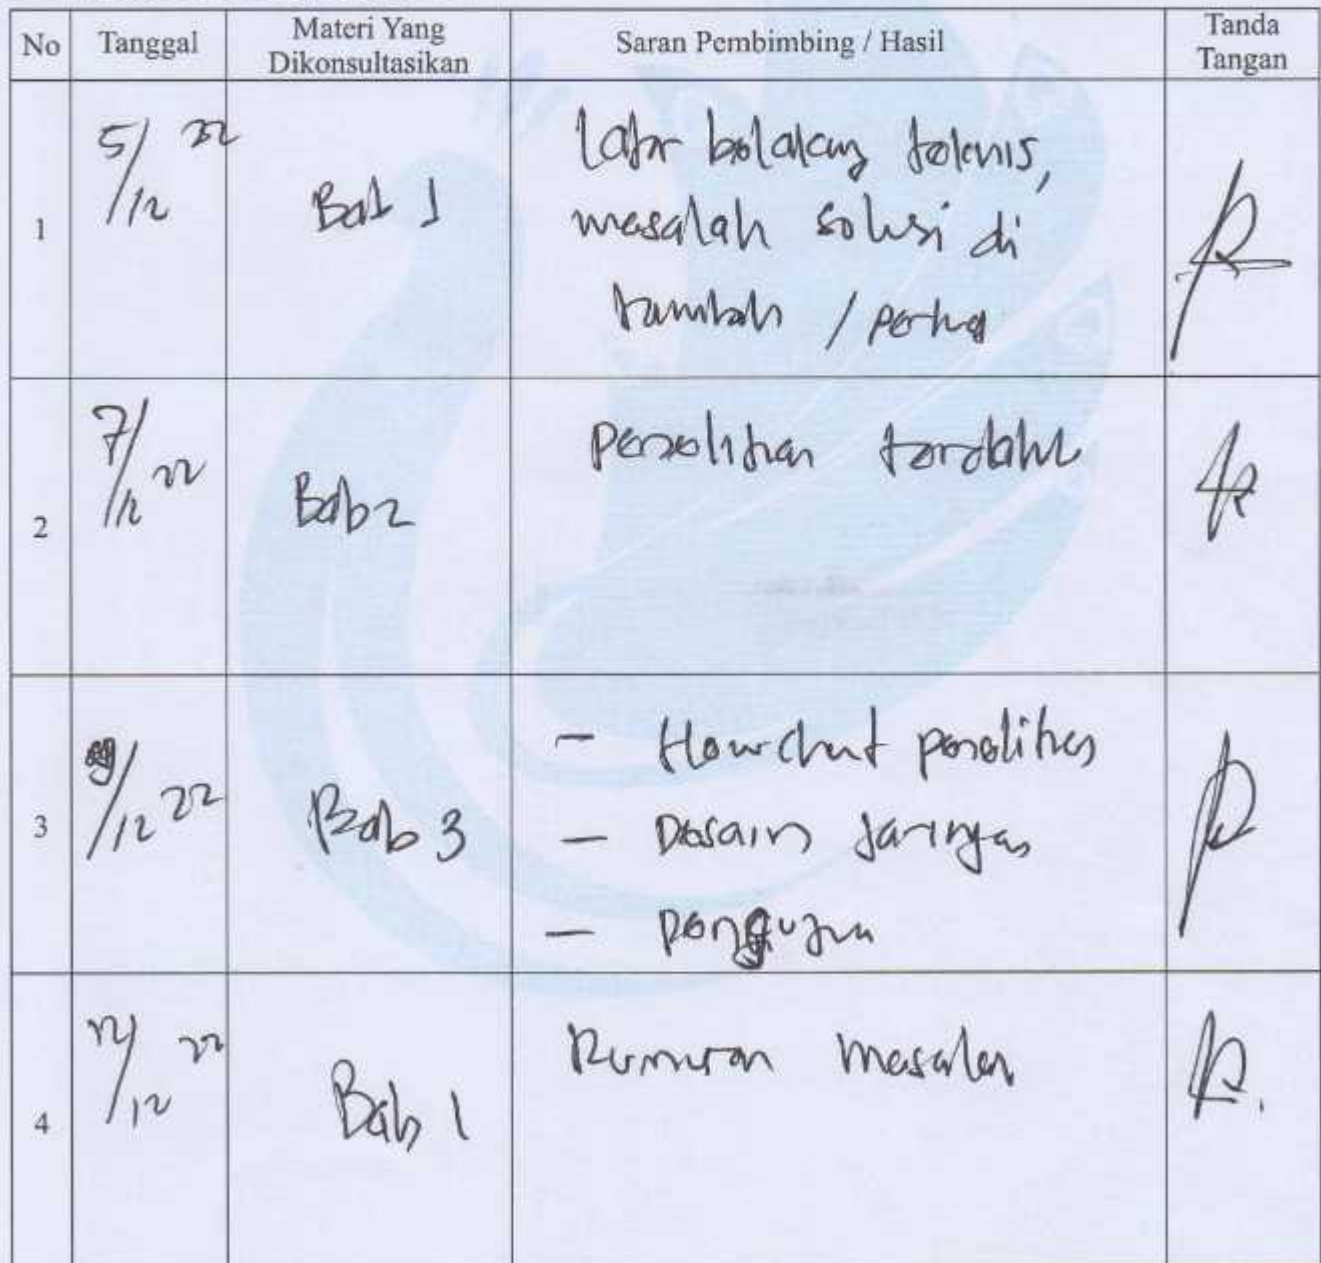 No Tanggal Materi Yang Dikonsultasikan Saran Pembimbing / Hasil Tanda Tangan
1 5/12 22 Bab 1 Latar belakang teknis,
masalah solusi di
tambah /
2 7/12 22 Bab 2 penelitian terdahulu
3 9/12 22 Bab 3 - Flowchart penelitian
- Desain Jaringan
- pengujian
4 12/12 22 Bab 1 Rumusan masalah